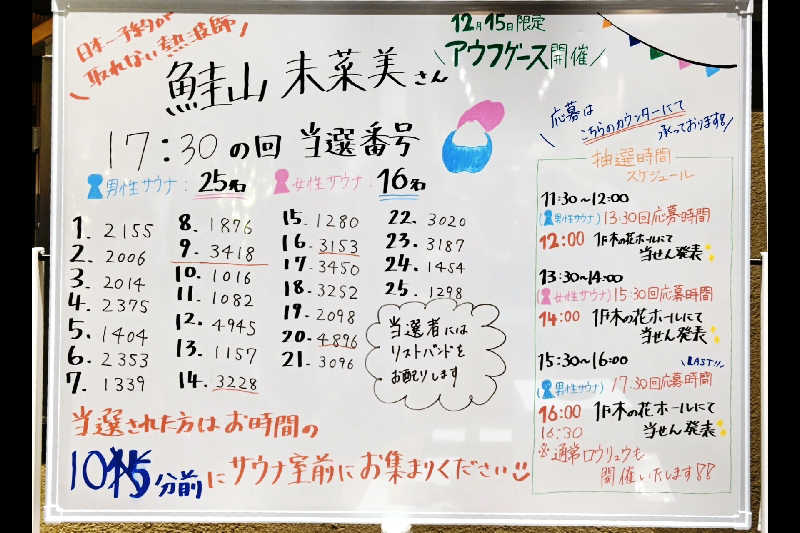 日本一予約が
取れない熱波師
鮭山 未菜美さん
12月15日限定
アウフグース開催
17:30の回 当選番号
男性サウナ: 25名 女性サウナ: 16名
1. 2155
2. 2006
3. 2014
4. 2375
5. 1404
6. 2353
7. 1339
8. 1876
9. 3418
10. 1016
11. 1082
12. 4945
13. 1157
14. 3228
15. 1280
16. 3153
17. 3450
18. 3252
19. 2098
20. 4896
21. 3096
22. 3020
23. 3187
24. 1454
25. 1298
当選者には
リストバンドを
お配りします
当選された方はお時間の
分前にサウナ室前にお集まりください
応募は
こちらのカウンターにて
承っております!!
抽選時間
スケジュール
11:30~12:00
(男性サウナ) 13:30回応募時間
12:00 1F木の花ホールにて
当せん発表
13:30~14:00
(女性サウナ) 15:30回応募時間
14:00 1F木の花ホールにて
当せん発表
15:30~16:00 LAST!!
(男性サウナ) 17:30回応募時間
16:00 1F木の花ホールにて
16:30 当せん発表
※通常ロウリュウも
開催いたします!!